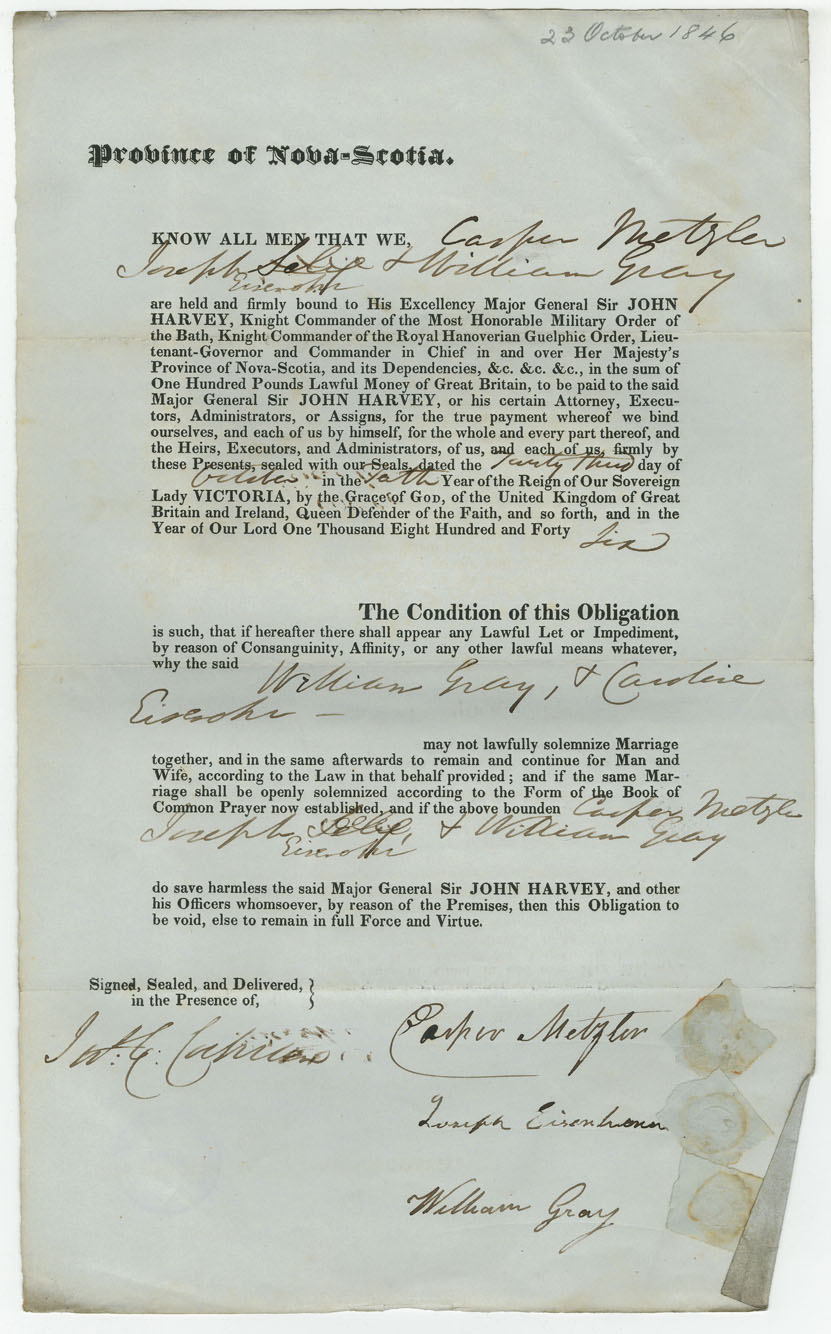 23 October 1846
Province of Nova-Scotia.
KNOW ALL MEN THAT WE, Casper Metzler
Joseph & William Gray
are held and firmly bound to His Excellency Major General Sir JOHN
HARVEY, Knight Commander of the Most Honorable Military Order of
the Bath, Knight Commander of the Royal Hanoverian Guelphic Order, Lieu-
tenant-Governor and Commander in Chief in and over Her Majesty's
Province of Nova-Scotia, and its Dependencies, &c. &c. &c., in the sum of
One Hundred Pounds Lawful Money of Great Britain, to be paid to the said
Major General Sir JOHN HARVEY, or his certain Attorney, Execu-
tors, Administrators, or Assigns, for the true payment whereof we bind
ourselves, and each of us by himself, for the whole and every part thereof, and
the Heirs, Executors, and Administrators, of us, and each of us, firmly by
these Presents, sealed with our Seals, dated the Twenty third day of
October in the Tenth Year of the Reign of Our Sovereign
Lady VICTORIA, by the Grace of GOD, of the United Kingdom of Great
Britain and Ireland, Queen Defender of the Faith, and so forth, and in the
Year of Our Lord One Thousand Eight Hundred and Forty Six
The Condition of this Obligation
is such, that if hereafter there shall appear any Lawful Let or Impediment,
by reason of Consanguinity, Affinity, or any other lawful means whatever,
why the said
William Gray, & Caroline
may not lawfully solemnize Marriage
together, and in the same afterwards to remain and continue for Man and
Wife, according to the Law in that behalf provided; and if the same Mar-
riage shall be openly solemnized according to the Form of the Book of
Common Prayer now established, and if the above bounden Casper Metzler
Joseph & William Gray
do save harmless the said Major General Sir JOHN HARVEY, and other
his Officers whomsoever, by reason of the Premises, then this Obligation to
be void, else to remain in full Force and Virtue.
Signed, Sealed, and Delivered, }
in the Presence of, }
Casper Metzler
Joseph
William Gray